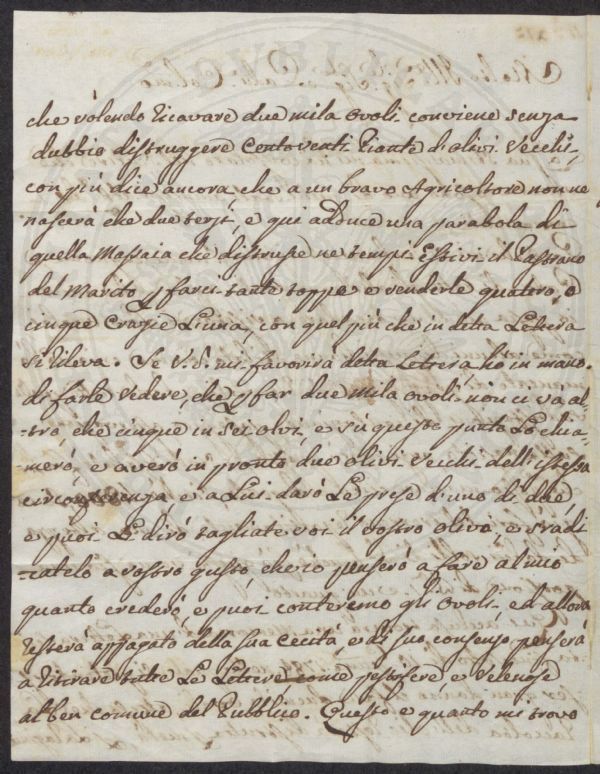 che volendo ricavare due mila ovoli conviene senza
dubbio distruggere Centoventi Piante d'olivi Vecchi,
con più dice ancora che a un bravo Agricoltore non ne
nascerà che due terzi, e qui adduce una parabola di
quella Massaia che distrusse ne tempi Estivi il Pastrano
del Marito p farci tante toppe e venderle quatro, o
cinque Crazie L'una, con quel più che in detta Lettera
si rileva. Se V. S. mi favorirà detta Lettera, hò in mano
di farle vedere, che p far due mila ovoli non ci và al-
-tro, che cinque in sei olivi, e sù questo punto Lo chia-
merò, e averò in pronto due olivi Vecchi dell'istessa
circonferenza, e a Lui darò Le prese d'uno di due,
e puoi Le dirò tagliate voi il vostro olivo, e sradi-
-catelo a vostro gusto, che io penserò a fare al mio
quanto crederò, e puoi conteremo gli ovoli, ed allora
resterà appagato della sua Cecità, e di suo consenso penserà
a ritirare tutte Le Lettere come pestifere, e Velenose
al ben comune del Pubblico. Questo è quanto mi trovo